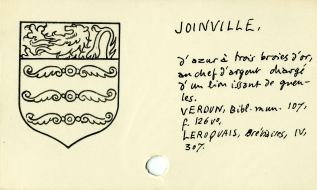 JOINVILLE.
d'azur à trois broies d'or,
au chef d'argent chargé
d'un lion issant de gueu-
les.
VERDUN, Bibl. mun. 107,
f. 126vo,
LEROQUAIS, Bréviaires, IV,
307.